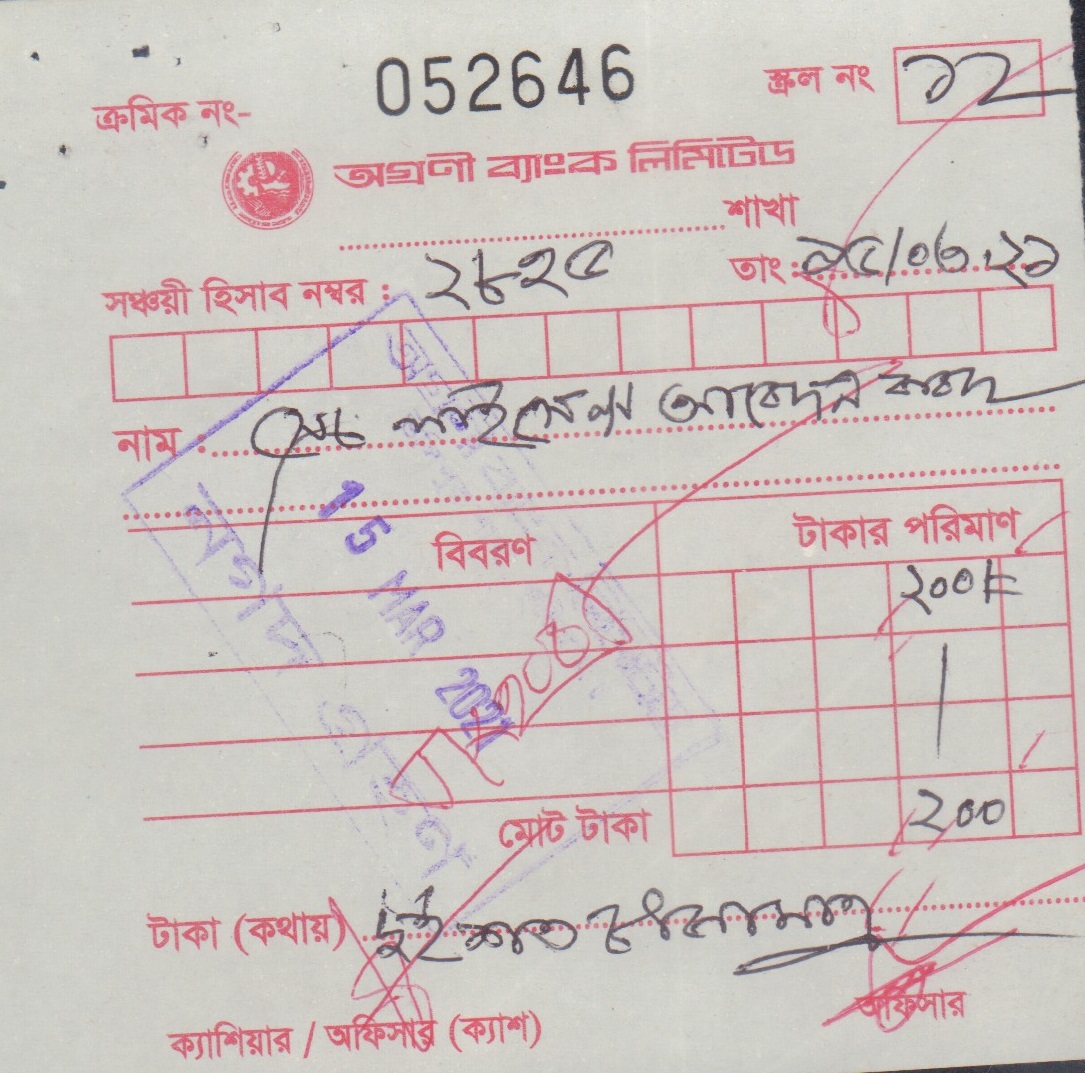 ক্রমিক নং- 052646 স্ক্রল নং ১২
অগ্রণী ব্যাংক লিমিটেড
শাখা
সঞ্চয়ী হিসাব নম্বর : ২৮২৫ তাং: ১৫/০৩.২১
নাম : আবেদন বাবদ
15 MAR 2021
নগদ গ্রহণ
বিবরণ টাকার পরিমাণ
২০০৳
মোট টাকা ২০০
টাকা (কথায়) দুই শত টাকা মাত্র
ক্যাশিয়ার / অফিসার (ক্যাশ) অফিসার